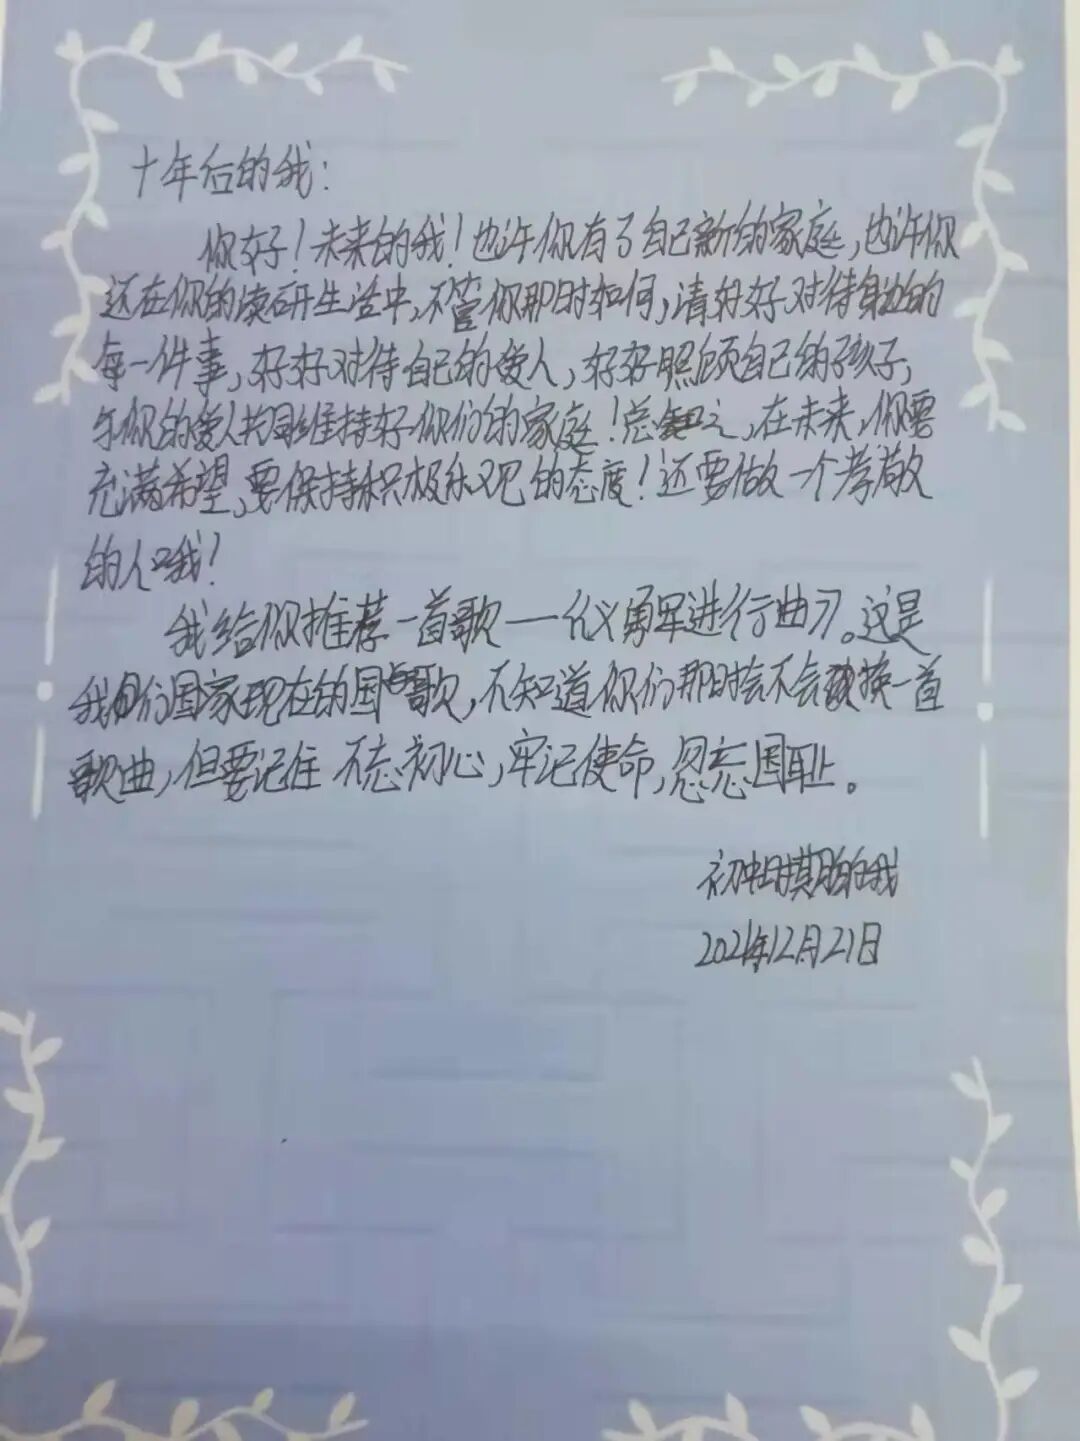 十年后的我：
你好！未来的我！也许你有了自己新的家庭，也许你
还在你的读研生活中，不管你那时如何，请好好对待身边的
每一件事，好好对待自己的爱人，好好照顾自己的孩子，
与你的爱人共同维持好你们的家庭！总之，在未来，你要
充满希望，要保持积极乐观的态度！还要做一个孝敬
的人哦！
我给你推荐一首歌—《义勇军进行曲》。这是
我们国家现在的国歌，不知道你们那时会不会换一首
歌曲，但要记住不忘初心，牢记使命，忽忘国耻。
初中时期的我
2021年12月21日